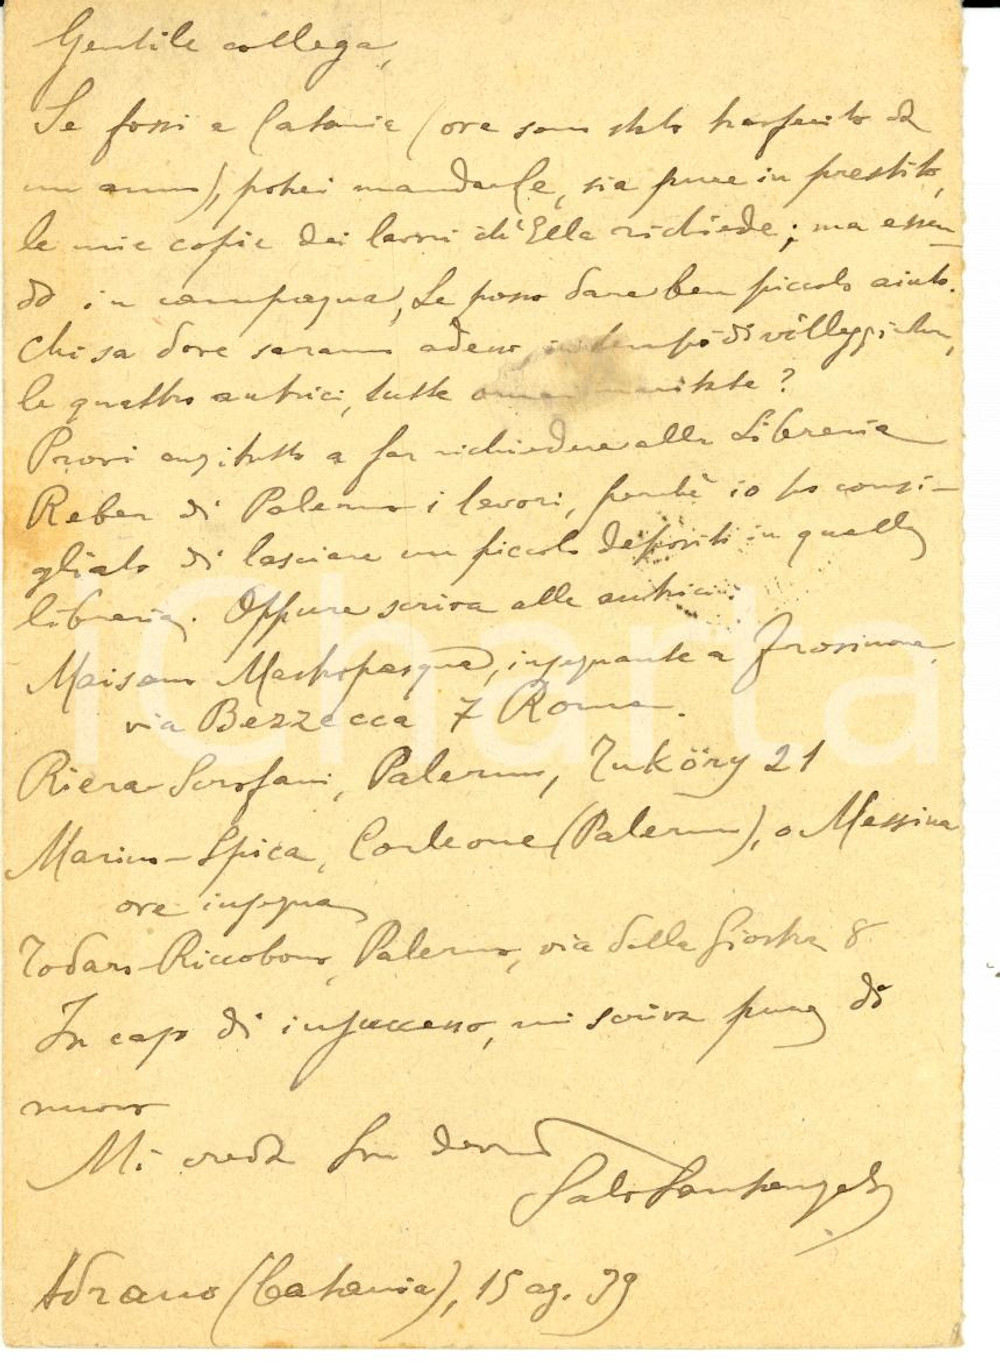 Gentile collega,
Se fossi a Catania (ove sono stato trasferito da
un anno), potrei mandarLe, sia pure in prestito,
le mie copie dei lavori ch'Ella richiede; ma essen-
do in campagna, Le posso dare ben piccolo aiuto.
Chi sa dove saranno adesso, in tempo di villeggiatura,
le quattro autrici, tutte omai maritate?
Provi anzitutto a far richiedere alla Libreria
Reber di Palermo i lavori, perchè io ho consi-
gliato di lasciare un piccolo deposito in quella
libreria. Oppure scriva alle autrici:
Maisano Mastropasqua, insegnante a Frosinone,
via Bezzecca 7 Roma.
Riera-Scrofani, Palermo, Tuköry 21
Marino-Spica, Corleone (Palermo), o Messina
ove insegna
Todaro-Riccobono, Palermo, via della Giostra 8
In caso di insuccesso, mi scriva pure di
nuovo
Mi creda Suo devmo
Salv Santangelo
Adrano (Catania), 15 ag. 39
iCharta